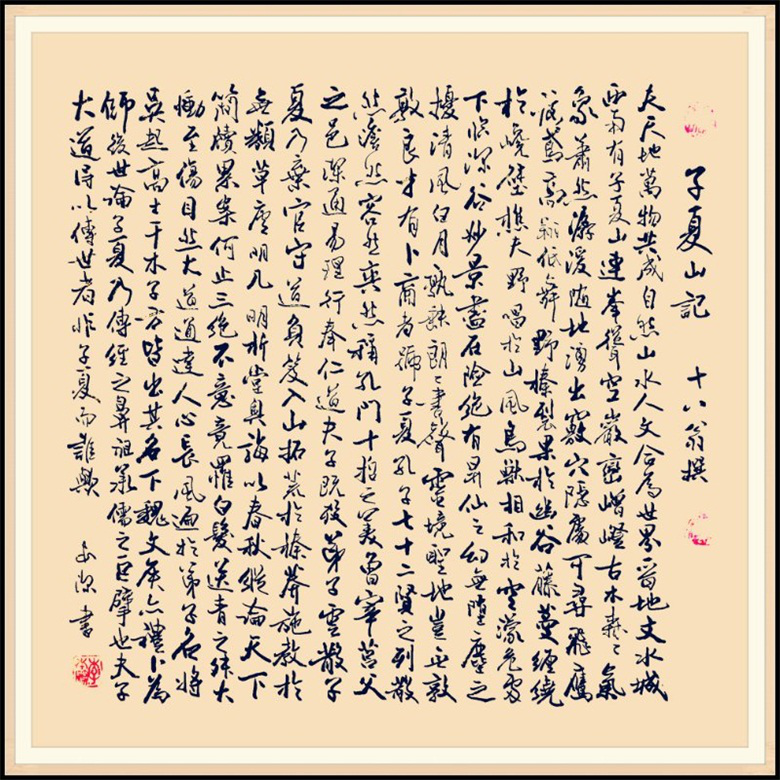 子夏山記 十八翁撰
夫天地萬物共成自然山水人文合為世界晉地文水城
西南有子夏山連峯聳空巖巒嶒嶝古木森々氣
象蕭然潺湲隨地湧出竅穴隱處可尋飛鷹
鳶高翱低舞野榛裂果於幽谷藤蔓纏繞
於嶢壁樵夫野唱於山風鳥獸相和於空濛危處
下臨深谷妙景盡在險絕有昇仙之幻無墮塵之
擾清風白月孰歟朗々書聲靈境聖地豈無敦
敦良才有卜商者號子夏孔子七十二賢之列
然澹然容然奕然稱孔門十哲之美曾宰莒父
之邑深通易理行奉仁道夫子既歿弟子雲散子
夏乃棄官守道負笈入山拓荒於榛莽施教於
無類草廬明几明析堂奧誨以春秋縱論天下
簡牘累案何止三絕不意竟罹白髮送青之殊大
慟至傷目然大道通達人心長風遍於弟子名將
吳起高士干木子方皆出其名下魏文侯亦禮卜為
師後世論子夏乃傳經之鼻祖承儒之巨擘也夫子
大道得以傳世者非子夏而誰歟
書